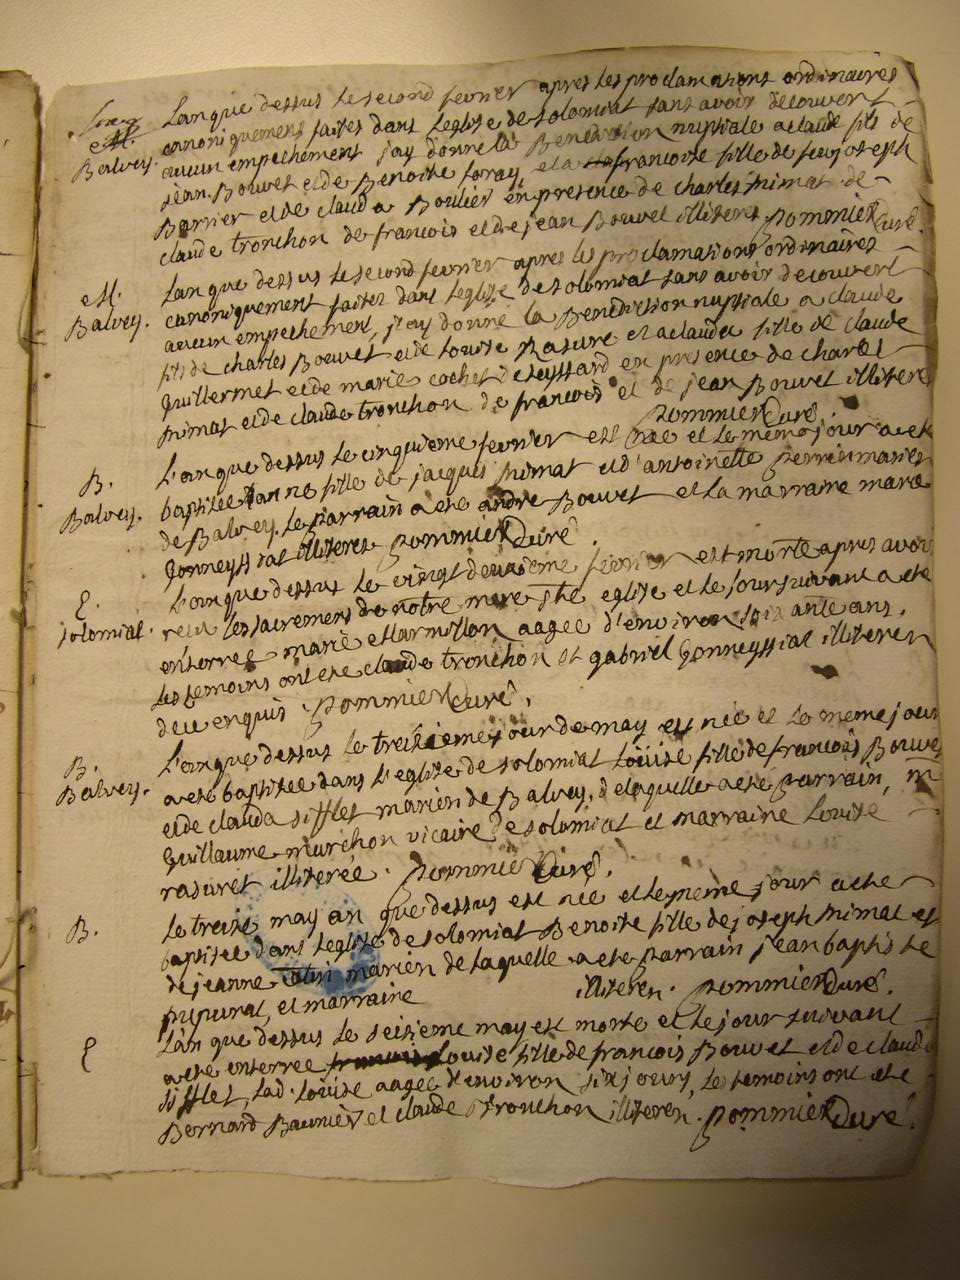 Lan que dessus le second fevrier apres les proclamations ordinaires
M.
canoniquement faites dans leglise de solomiat sans avoir decouvert
Balvey.
aucun empechement jay donne la Benediction nuptiale a claude fils de
jean Bouvet et de Benoite foray, et a francoise fille de feu joseph
Barrier et de clauda Boulier en presence de charles nimat de
claude tronchon de francois et de jean Bouvet illiteres. pommier Curé.
M.
Lan que dessus le second fevrier apres les proclamations ordinaires
Balvey.
canoniquement faites dans leglise de solomiat sans avoir decouvert
aucun empechement, jay donné la Benediction nuptiale a claude
fils de charles Bouvet et de louise Rasure et a clauda fille de claude
guillermet et de marie cochet de leyssard en presence de charles
nimat et de claude tronchon de francois et de jean Bouvet illiteres
pommier Curé.
B.
L'an que dessus le cinquieme fevrier est née et le meme jour a ete
Balvey.
baptisée anne fille de jacques nimat et d'antoinette perrin mariés
de Balvey. le parrain a ete andré Bouvet et la marraine marie
gonneyssiat illiteres pommier Curé.
E.
L'an que dessus le vingt deuxieme fevrier est morte apres avoir
solomiat.
receu les sacremens de notre mere ste eglise et le jour suivant a ete
enterrée marie marmillon aagee d'environ soixante ans,
les temoins ont ete claude tronchon et gabriel gonneyssiat illiteres
de ce enquis. pommier Curé.
B.
L'an que dessus le treisieme jour de may est née et le meme jour
Balvey.
a ete baptisée dans l'eglise de solomiat Louise fille de francois Bouvet
et de clauda sifflet mariés de Balvey, de laquelle a ete parrain, m
guillaume murchon vicaire de solomiat et marraine louise
rasuret illiterée. pommier Curé.
B.
Le treise may an que dessus est née et le meme jour a ete
baptisée dans leglise de solomiat Benoite fille de joseph nimat et
de jeanne mariés de laquelle a ete parrain jean baptiste
et marraine illiteres. pommier Curé.
E
Lan que dessus le seisieme may est morte et le jour suivant
a ete enterrée Louise fille de francois Bouvet et de clauda
sifflet, lad. louise aagee d'environ six jours, les temoins ont ete
Bernard Baunier et claude tronchon illiteres. pommier Curé.